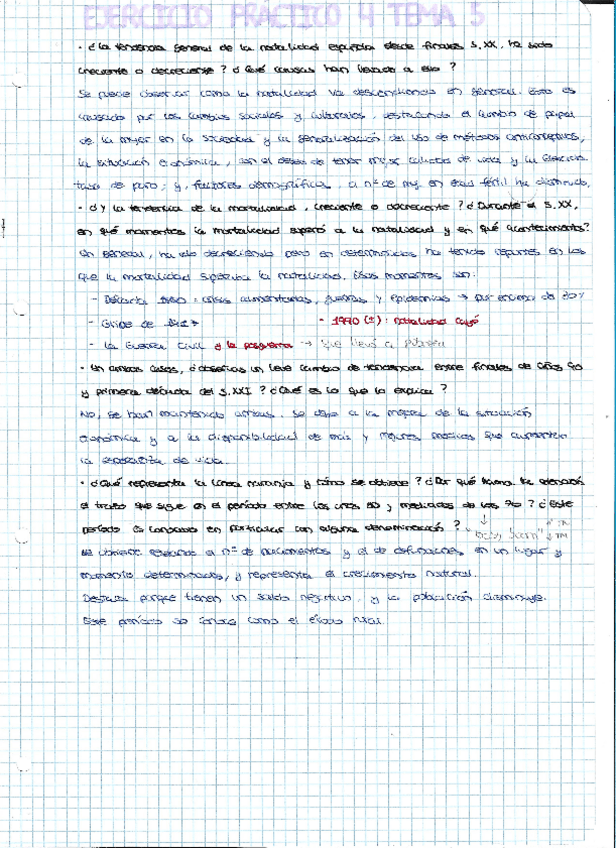 EJERCICIO PRÁCTICO 4 TEMA 5
· ¿La tendencia general de la natalidad española desde finales S.XX, ha sido
creciente o decreciente? ¿Qué causas han llevado a eso?
Se puede observar como la natalidad va descendiendo en general. Esto es
causado por los cambios sociales y culturales, destacando el cambio de papel
de la mujer en la sociedad y la generalización del uso de métodos anticonceptivos,
la situación económica, con el deseo de tener mejor calidad de vida y la elevada
tasa de paro; y, factores demográficos, a nº de muj. en edad fértil ha disminuido.
· ¿Y la tendencia de la mortalidad, creciente o decreciente? ¿Durante el S.XX,
en qué momentos la mortalidad superó a la natalidad y en qué acontecimientos?
En general, ha ido decreciendo pero en determinados ha tenido repuntes en los
que la mortalidad superaba la natalidad. Esos momentos son:
- Década : crisis alimentarias, guerras y epidemias → por encima de 30%
- Gripe de
- 1940 (±): natalidad cayó
- La Guerra Civil y la posguerra → que llevó a
· En ambos casos, ¿observas un leve cambio de tendencia entre finales de años 90
y primera década del S.XXI? ¿Qué es lo que lo explica?
No, se han mantenido ambas. Se debe a la mejora de la situación
económica y a la disponibilidad de más y mejores médicos que aumentan
la esperanza de vida.
· ¿Qué representa la línea naranja y cómo se obtiene? ¿Por qué llama la atención
el trazo que sigue en el período entre los años 50 y mediados de los 70? ¿Este
período es conocido en particular con alguna denominación? ↓ "baby boom"
Se obtiene restando a nº de nacimientos y el de defunciones en un lugar y
momento determinados, y representa el crecimiento natural.
Destaca porque tienen un saldo negativo, y la población disminuye.
Este período se conoce como el éxodo rural.